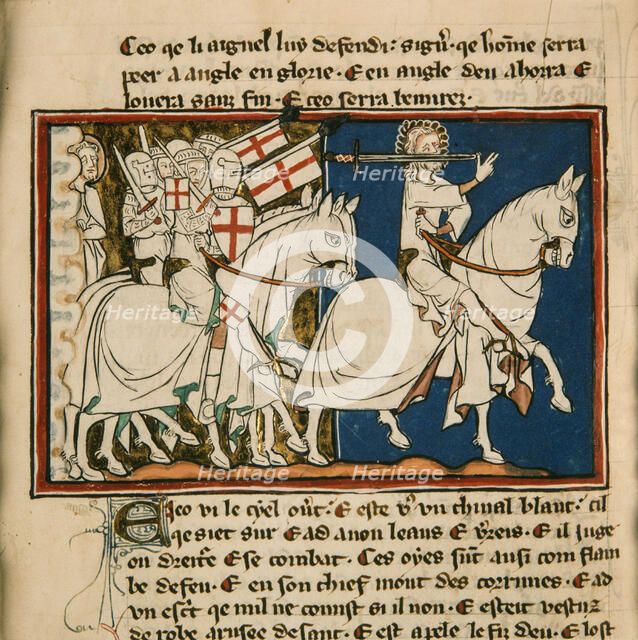 Ceo qe li aignel luy defendi: signĩ. qe home serra
peer a angle en glorie. E en angle deu ahorra E
lovera sanz fin. E ceo serra benurez.
Heritage Heritage
Heritage Heritage
Heritage Heritage
E jeo vi le cyel ov̄t: E este v9 vn chival blanc: cil
qe siet sur E ad a non leaus E v̄reis. E il juge
en dreit̄e E se combat. Ces oyes sūt ausi com flam
be de feu. E en son chief mont des corounes. E ad
vn esc̄t qe nul ne conust si il non. E esteit vestuz
de robe arusee de sanc. E est apele le fiz deu. E lost